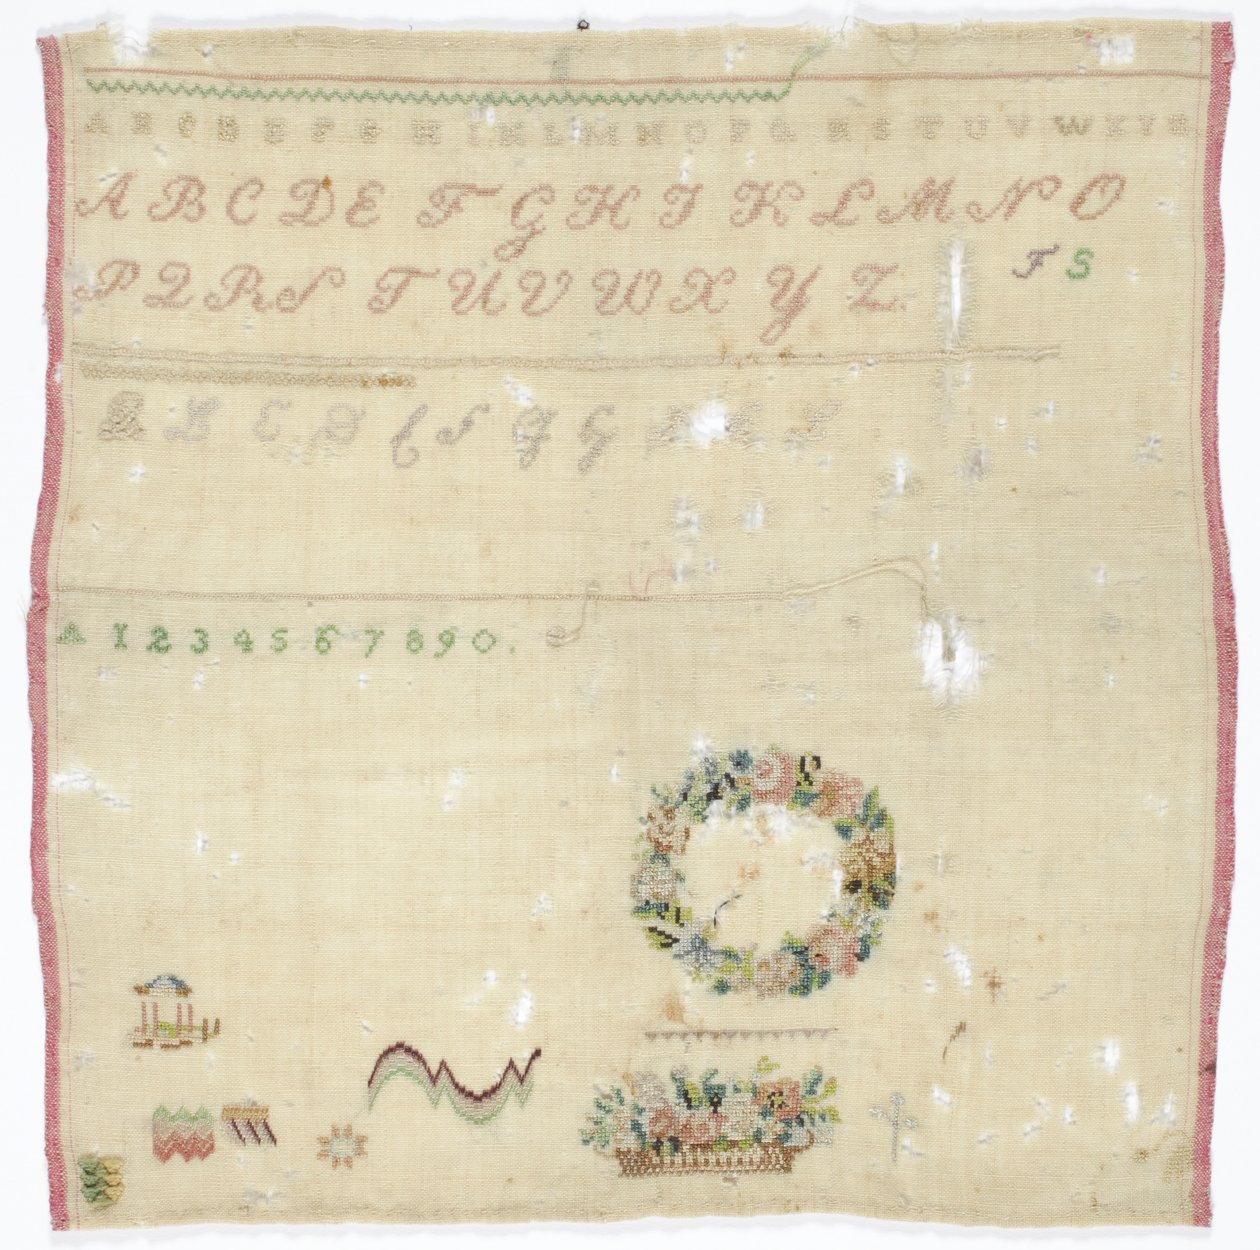 A B C D E F G H I K L M N O P Q R S T U V W X Y Z
A B C D E F G H I K L M N O
P Q R S T U V W X Y Z. F S
A B C D
A 1 2 3 4 5 6 7 8 9 0.